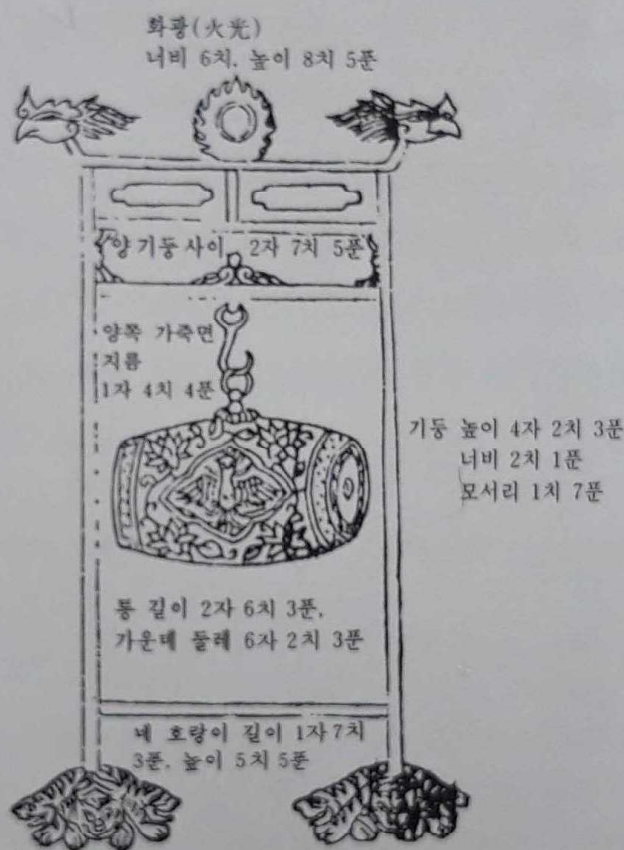 화광(火光)
너비 6치, 높이 8치 5푼
양 기둥사이 2자 7치 5푼
양쪽 가죽면
지름
1자 4치 4푼
기둥 높이 4자 2치 3푼
너비 2치 1푼
모서리 1치 7푼
통 길이 2자 6치 3푼,
가운데 둘레 6자 2치 3푼
네 호랑이 길이 1자 7치
3푼, 높이 5치 5푼